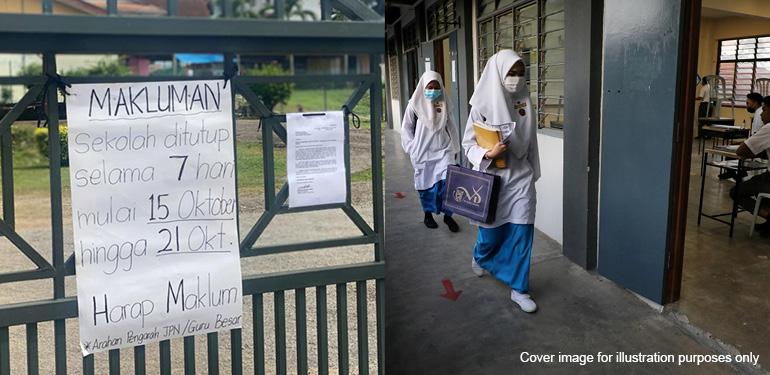 MAKLUMAN
Sekolah ditutup
selama 7 hari
mulai 15 Oktober
hingga 21 Okt.
Harap Maklum
*Arahan Pengarah JPN/Guru Besar
Cover image for illustration purposes only